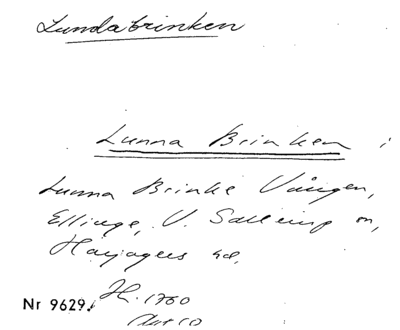 Lundabrinken
Lunna Brinken i
Lunna Brinke Vången,
Ellinge, V. Sallerup sn,
Harjagers hd.
Nr 9629. Hk. 1760
Akt 10